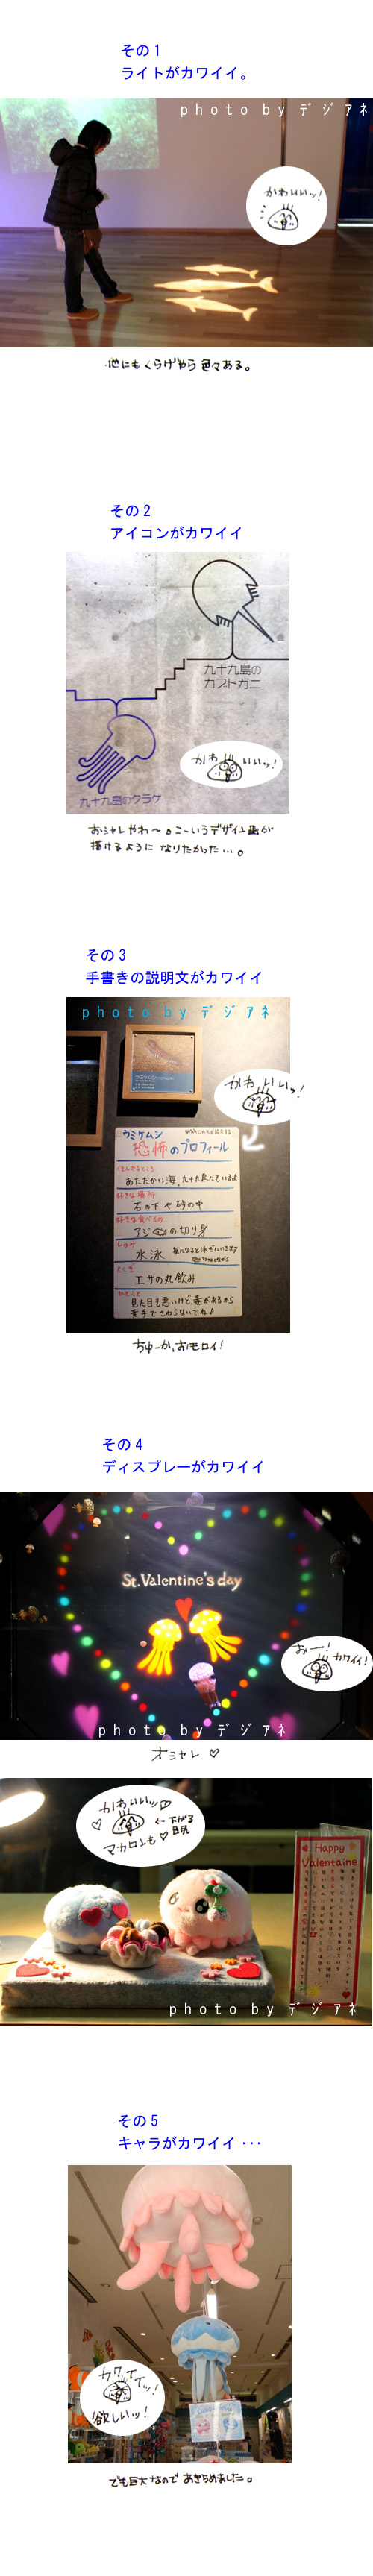 その1
ライトがカワイイ。
photo by デジアネ
かわいいッ!
他にもくらげやら色々ある。
その2
アイコンがカワイイ
九十九島の
カブトガニ
かわいいッ!
九十九島のクラゲ
オシャレやわ〜。こーいうデザイン画が
描けるように なりたかった…。
その3
手書きの説明文がカワイイ
photo by デジアネ
かわいいッ!
ウミケムシ
ウミケムシ
恐怖のプロフィール
住んでるところ
あたたかい海。九十九島にもいるよ
好きな場所
石の下や砂の中
好きな食べもの
アジの切り身
しゅみ
水泳
夜になると泳ぎにいきます
とくぎ
エサの丸飲み
ひとこと
見た目も悪いけど、毒があるから
素手でさわらないでね♪
ちゅーか、オモロイ!
その4
ディスプレーがカワイイ
St.Valentine's day
おー!
カワイイ!
photo by デジアネ
オシャレ ♡
かわいいッ♡
←下がる
目尻
マカロンも♡
Happy
Valentaine
photo by デジアネ
その5
キャラがカワイイ ･･･
カワイイッ!
欲しいッ!
でも巨大なので あきらめました。